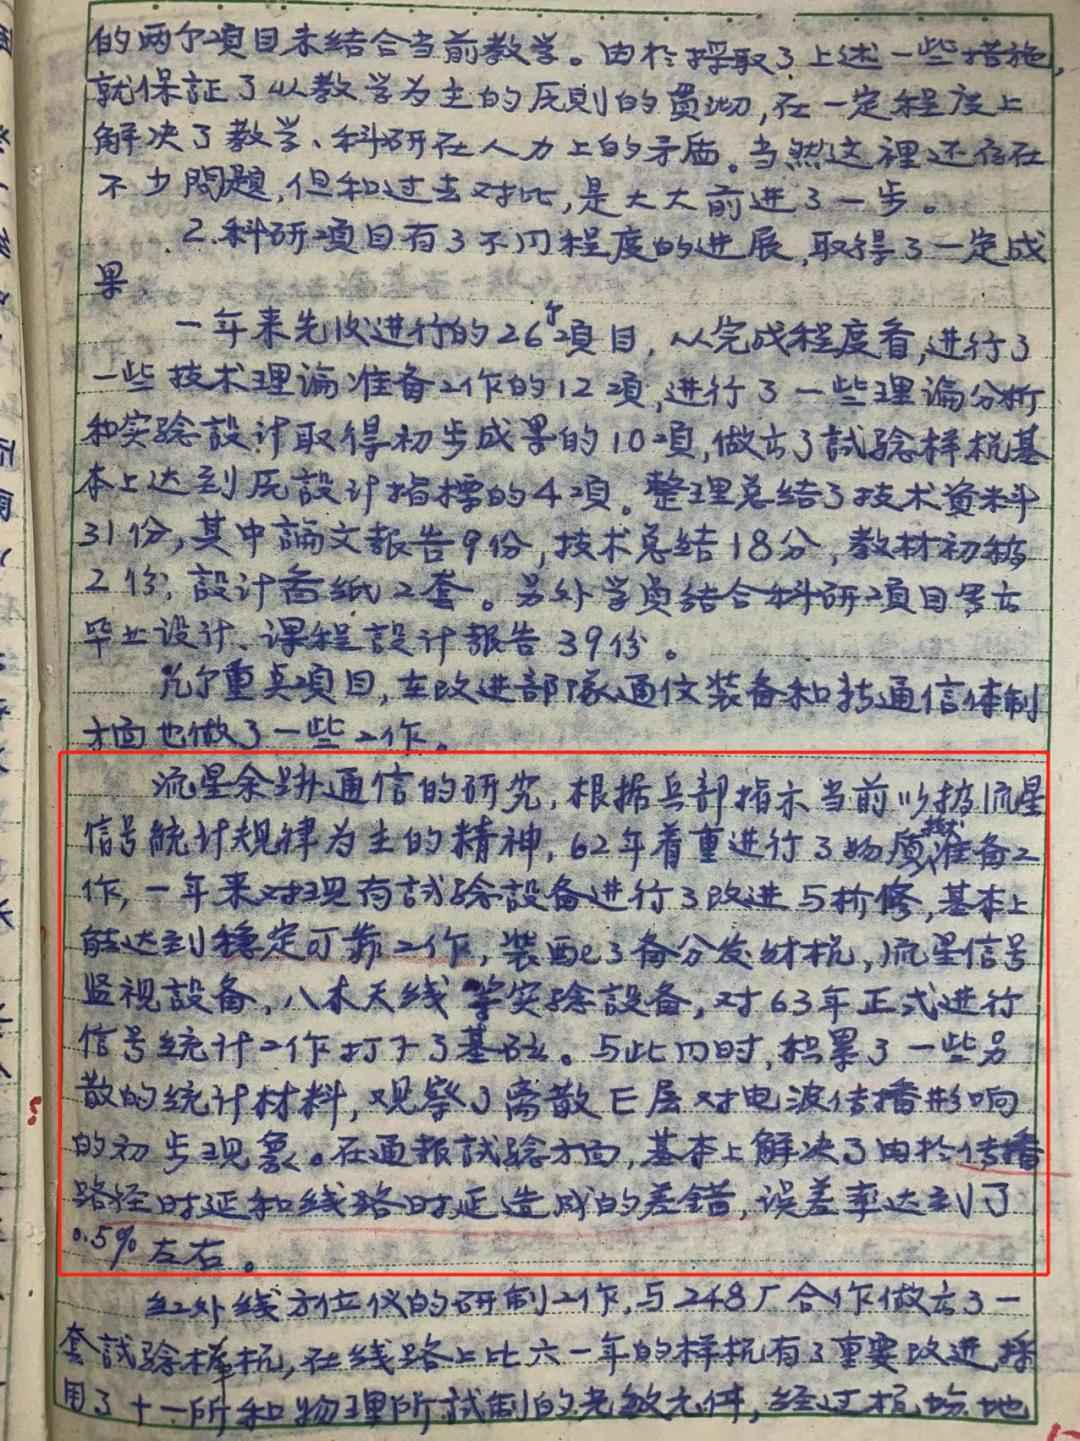 的两个项目未结合当前教学。由於採取了上述一些措施,
就保証了以教学为主的原則的贯彻,在一定程度上
解决了教学、科研在人力上的矛盾。当然这裡还存在
不少問題,但和过去对比,是大大前进了一步。
2.科研项目有了不同程度的进展,取得了一定成
果.
一年来先后进行的26个項目,从完成程度看,进行了
一些技术理論准备工作的12項,进行了一些理論分析
和实验設计取得初步成果的10項,做出了試验样机基
本上达到原設计指標的4項。整理总结了技术資料
31份,其中論文報告9份,技术总结18分,教材初稿
2份,設计畣纸2套。另外学员結合科研項目写出
毕业设计、课程設计報告39份。
几个重点项目,在改进部隊通信装备和
通信体制
方面也做了一些工作。
流星余跡通信的研究,根据兵部指示当前以搞流星
信号統计規律为主的精神,62年着重进行了物质技术准备工
作,一年来对现有試验設备进行了改进与折修,基本上
能达到穩定可靠工作,装配了备分发射机,流星信号
监视設备,八木天线等实验設备,对63年正式进行
信号统计工作打下了基础。与此同时,积累了一些另
散的统计材料,观察了离散E层对电波传播影响
的初步现象。在通報試验方面,基本上解决了由於传播
路徑时延和线路时延造成的差錯,误差率达到了
0.5%左右。
红外线方位仪的研制工作,与248厂合作做出了一
套試验樣机,在线路上比六一年的样机有了重要改进,採
用了十一所和物理所試制的光敏元件,经过机场地